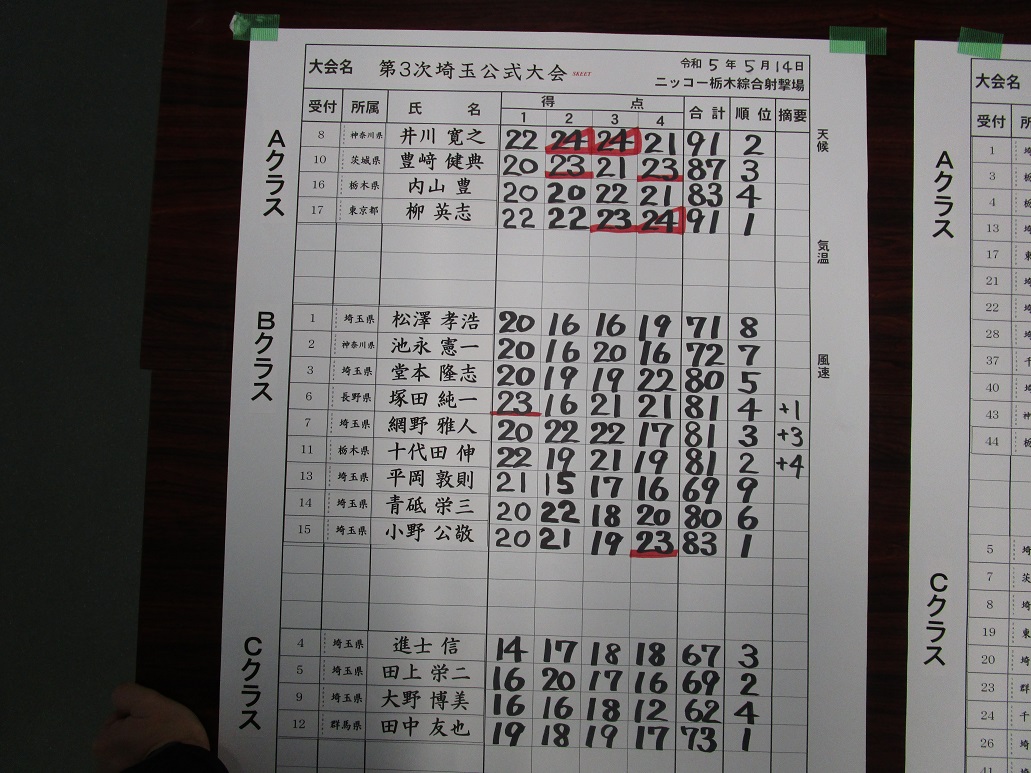 大会名 第3次埼玉公式大会 SKEET 令和 5 年 5 月 14 日
ニッコー栃木綜合射撃場
受付 所属 氏 名 得 点 合 計 順 位 摘要
1 2 3 4
Aクラス
8 神奈川県 井川 寛之 22 24 24 21 91 2
10 茨城県 豊﨑 健典 20 23 21 23 87 3
16 栃木県 内山 豊 20 20 22 21 83 4
17 東京都 柳 英志 22 22 23 24 91 1
Bクラス
1 埼玉県 松澤 孝浩 20 16 16 19 71 8
2 神奈川県 池永 憲一 20 16 20 16 72 7
3 埼玉県 堂本 隆志 20 19 19 22 80 5
6 長野県 塚田 純一 23 16 21 21 81 4 +1
7 埼玉県 網野 雅人 20 22 22 17 81 3 +3
11 栃木県 十代田 伸 22 19 21 19 81 2 +4
13 埼玉県 平岡 敦則 21 15 17 16 69 9
14 埼玉県 青砥 栄三 20 22 18 20 80 6
15 埼玉県 小野 公敬 20 21 19 23 83 1
Cクラス
4 埼玉県 進士 信 14 17 18 18 67 3
5 埼玉県 田上 栄二 16 20 17 16 69 2
9 埼玉県 大野 博美 16 16 18 12 62 4
12 群馬県 田中 友也 19 18 19 17 73 1
天候
気温
風速
大会名
受付
Aクラス
1 埼
3 栃
4 埼
13 埼
17 東
21 埼
22 埼
28 埼
37 千
40 埼
43 神
44 栃
Cクラス
5 埼
7 茨
8 埼
19 東
20 埼
23 群
24 千
26 埼
41